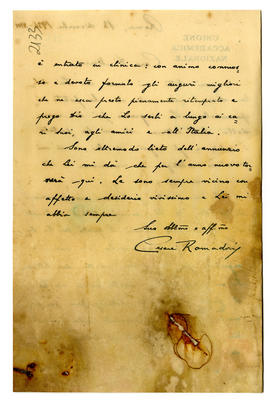 2133
UNIONE
ACCADEMICA
NAZIONALE
è entrato in clinica: con animo commos-
so e devoto formulo gli auguri migliori
che ne esca presto pienamente
prego Dio che Lo serbi a lungo ai ca
ri suoi, agli amici e all'Italia.
Sono oltremodo lieto dell'annunzio
che Lei mi dà che per l'anno nuovo to
nerà qui. Le sono sempre vicino con
affetto e desiderio vivissimo e Lei mi
abbia sempre
Suo obbl.mo e aff.mo
Cesare